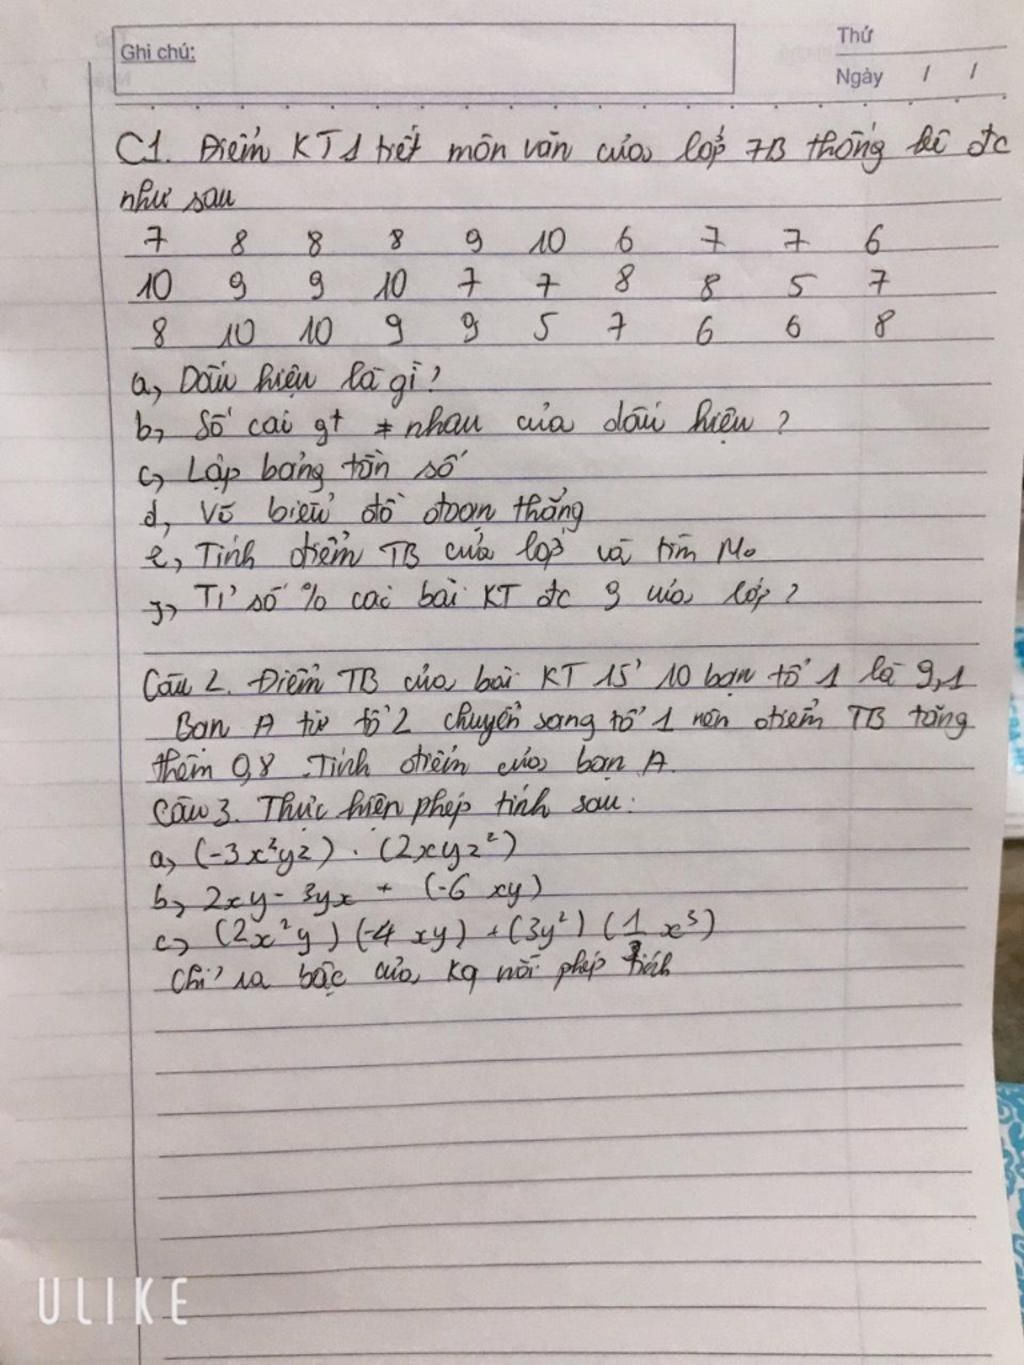 Ghi chú:
Thứ
Ngày / /
C1. Điểm KT 1 tiết môn văn của lớp 7B thống kê đc
như sau
7 8 8 8 9 10 6 7 7 6
10 9 9 10 7 7 8 8 5 7
8 10 10 9 9 5 7 6 6 8
a, Dấu hiệu là gì?
b, Số các gt ≠ nhau của dấu hiệu?
c, Lập bảng tần số
d, Vẽ biểu đồ đoạn thẳng
e, Tính điểm TB của lớp và tìm Mo
g, Tỉ số % các bài KT đc 9 của lớp?
Câu 2. Điểm TB của bài KT 15' 10 bạn tổ 1 là 9,1
Bạn A từ tổ 2 chuyển sang tổ 1 nên điểm TB tăng
thêm 0,8. Tính điểm của bạn A.
Câu 3. Thực hiện phép tính sau:
a, (-3x²yz) . (2xyz²)
b, 2xy - 3yx + (-6 xy)
c, (2x²y)(-4 xy) + (3y²)( x³)
Chỉ ra bậc của kq mỗi phép tính
ULIKE